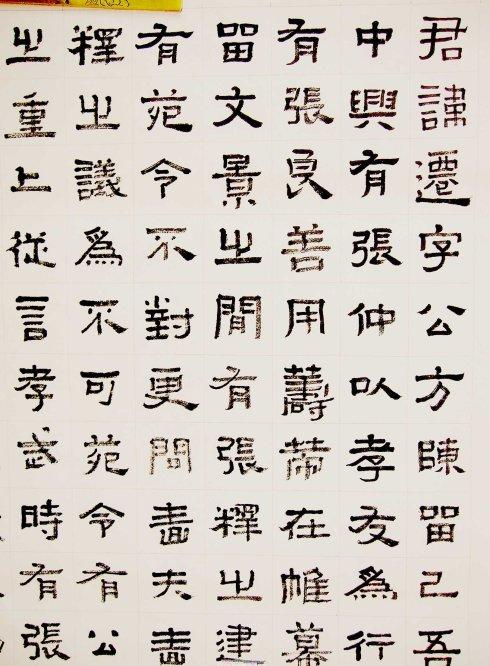 君諱遷字公方陳留己吾
中興有張仲以孝友爲行
有張良善用籌策在帷幕
留文景之間有張釋之建
有苑令不對更問嗇夫嗇
釋之議爲不可苑令有公
之重上從言孝武時有張